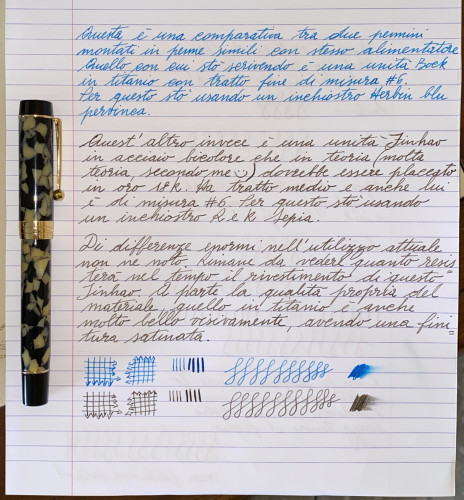 Questa è una comparativa tra due pennini
montati in penne simili con stesso alimentatore
Quello con cui sto scrivendo è una unità Bock
in titanio con tratto fine di misura #6.
Per questo sto usando un inchiostro Herbin blu
pervinca.
Quest'altro invece è una unità Jinhao
in acciaio bicolore che in teoria (molta
teoria, secondo me ☺) dovrebbe essere placcato
in oro 18k. Ha tratto medio e anche lui
è di misura #6. Per questo sto usando
un inchiostro R e K Sepia.
Di differenze enormi nell'utilizzo attuale
non ne noto. Rimane da vedere quanto resis
terà nel tempo il rivestimento di questo
Jinhao. A parte la qualità propria del
materiale quello in titanio è anche
molto bello visivamente, avendo una fini=
tura satinata.